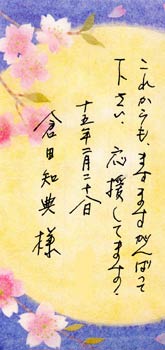 これからも、ますますがんばって
下さい、応援してます。
十五年二月二十八日
倉田知典様